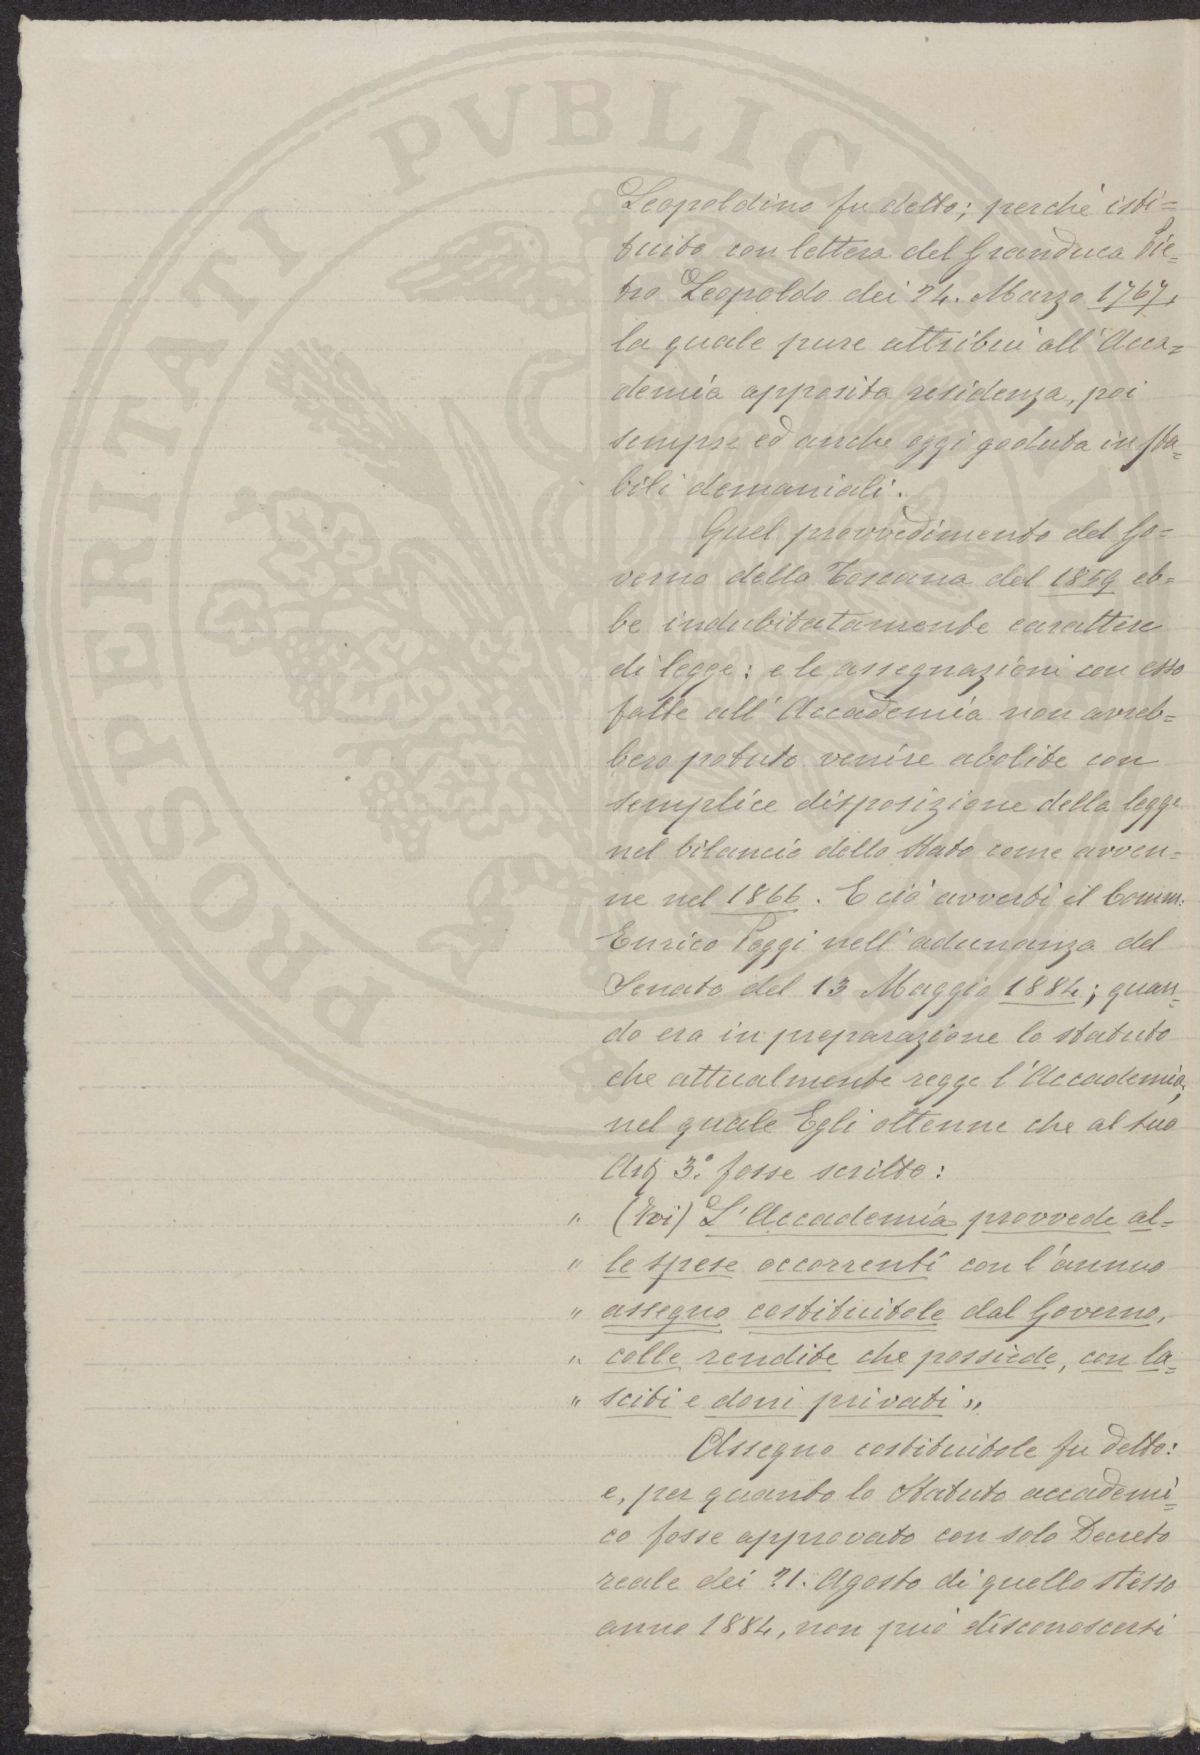 Leopoldino fu detto; perché isti=
tuito con lettera del Granduca Pie=
tro Leopoldo dei 24. Marzo 1767,
la quale pure attribuì all'Acca=
demia apposita residenza, poi
sempre ed anche oggi goduta in sta=
bili demaniali.
Quel provvedimento del Go=
verno della Toscana del 1859 eb=
be indubitatamente carattere
di legge: e le assegnazioni con esso
fatte all'Accademia non avreb=
bero potuto venire abolite con
semplice disposizione della legge
nel bilancio dello Stato come avven=
ne nel 1866. E ciò avvertì il Comm:
Enrico Poggi nell'adunanza del
Senato del 13 Maggio 1884; quan=
do era in preparazione lo statuto
che attualmente regge l'Accademia;
nel quale Egli ottenne che al suo
Art 3.° fosse scritto:
" (Ivi) L'Accademia provvede al=
" le spese occorrenti con l'annuo
" assegno costituitole dal Governo,
" colle rendite che possiede, con la=
" sciti e doni privati "
Assegno costituitole fu detto:
e, per quanto lo Statuto accademi=
co fosse approvato con solo Decreto
reale dei 21. Agosto di quello stesso
anno 1884, non può disconoscersi
PROSPERITATI PVBLICAE